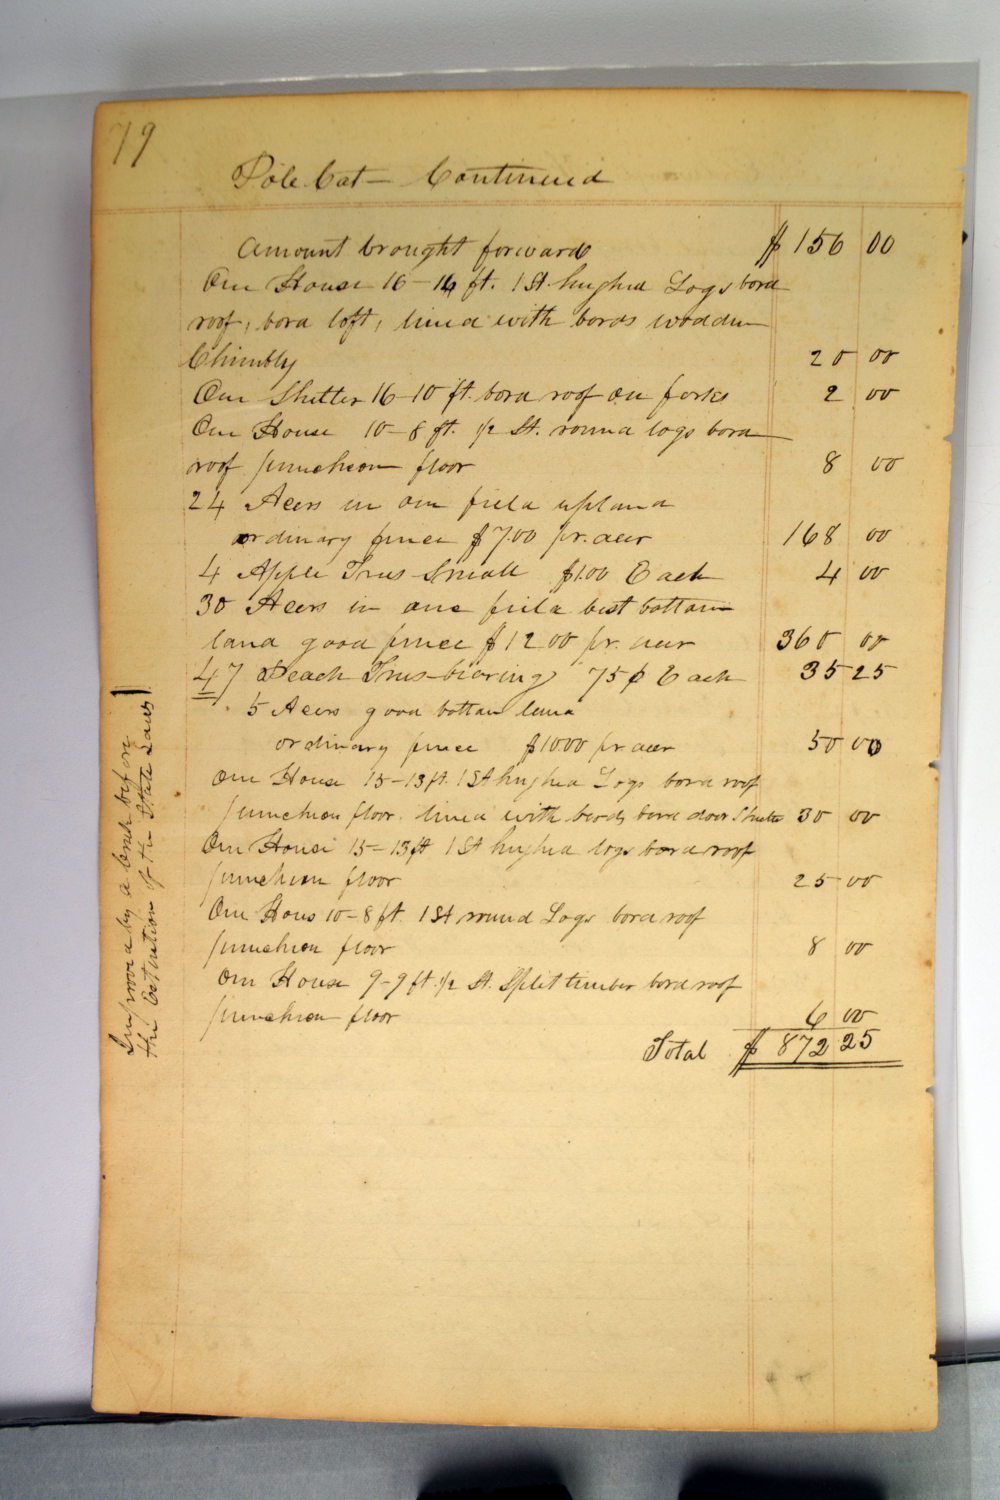 79
Pole Cat – Continued
Amount brought forward $ 156 00
One House 16–14 ft. 1 St. hughed Logs bord
roof, bord loft, lined with bords wooden
Chimbly 20 00
One Shelter 16–10 ft. bord roof on forks 2 00
One House 10–8 ft. 1/2 St. round logs bord
roof puncheon floor 8 00
24 Acers in one field upland
ordinary fence $7.00 pr. acer 168 00
4 Apple Trees Small $1.00 Each 4 00
30 Acers in one field best bottom
land good fence $12 00 pr. acer 360 00
47 Peach Trees bearing 75¢ Each 35 25
5 Acers good bottom land
ordinary fence $10 00 pr acer 50 00
One House 15–13 ft. 1 St hughed Logs bord roof
puncheon floor. lined with bords bord door Shutter 30 00
One House 15–13 ft 1 St hughed logs bord roof
puncheon floor 25 00
One Hous 10–8 ft. 1 St round Logs bord roof
puncheon floor 8 00
One House 9–9 ft. 1/2 St. Split timber bord roof
puncheon floor 6 00
Total $ 872 25
Improved by a before
the Extention of the State Laws